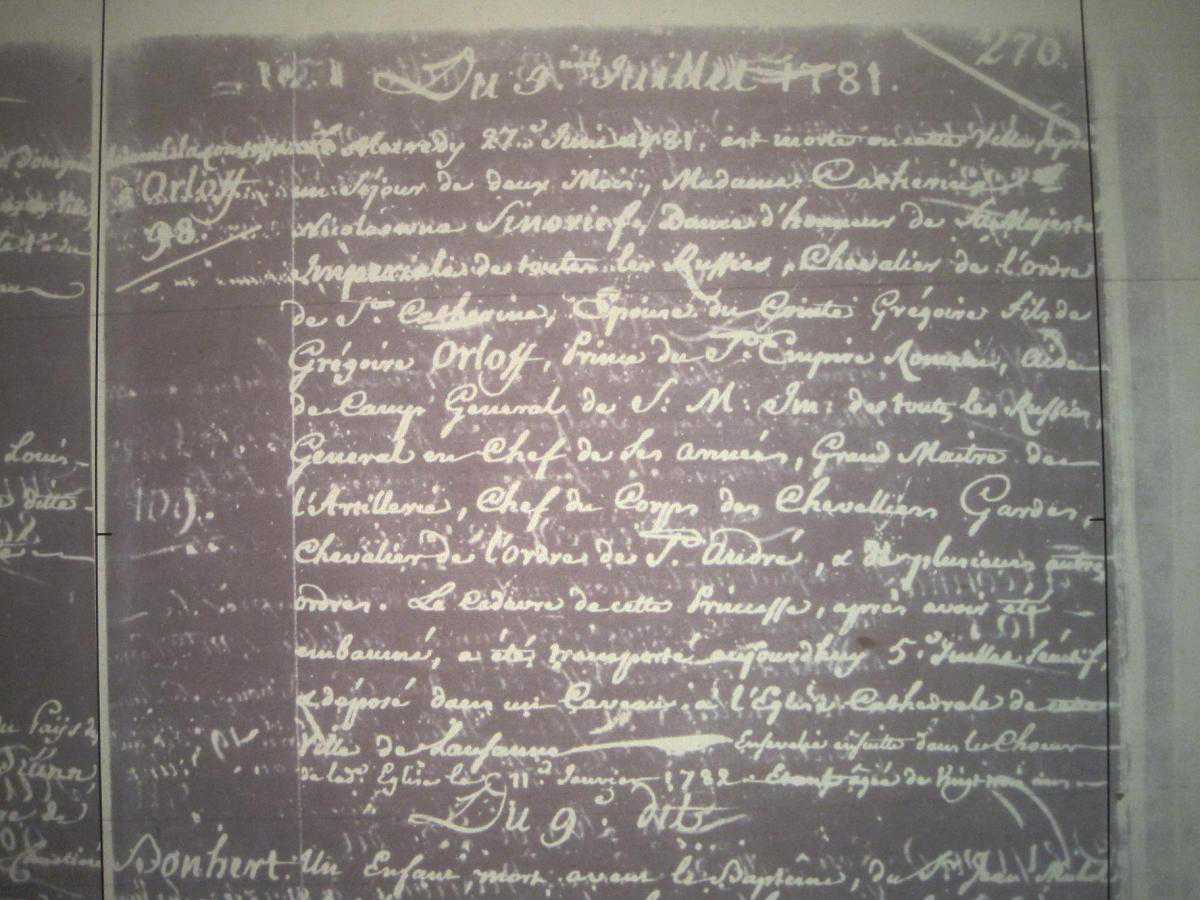 270.
Du 9. Juillet 1781.
Mercredy 27.e Juin 1781. est morte en cette Ville, après
Orloff un Séjour de deux Mois, Madame Catherine
98. Nicolaewna Sinovief, Dame d'honneur de Sa Majesté
Impériale de toutes les Russies, Chevalier de l'ordre
de Ste. Catherine, Epouse du Comte Grégoire fils de
Grégoire Orloff, Prince du St. Empire Romain, Aide
de Camp General de S: M: Im: des toutes les Russies,
Louis General en Chef de Ses armées, Grand Maitre de
ditte l'Artillerie, Chef du Corps des Chevalliers Gardes,
Chevalier de l'ordre de St. André, & de plusieurs autres
ordres. Le Cadavre de cette Princesse, après avoir été
embaumé, a été transporté aujourdhuy 5.e Juillet
& déposé dans un Caveau à l'Eglise Cathedrale de
du Pays de Ville de Lausanne Ensevelie ensuitte dans le Choeur
de lad. Eglise le 11.e Janvier 1782 âgée de Vingt
Du 9.e dit
Bonhert. Un Enfant, mort avant le Baptême, du Sr. Jean